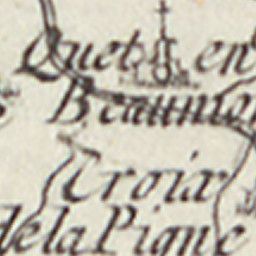 Quet en
Beaumon
Croix
de la Pigne